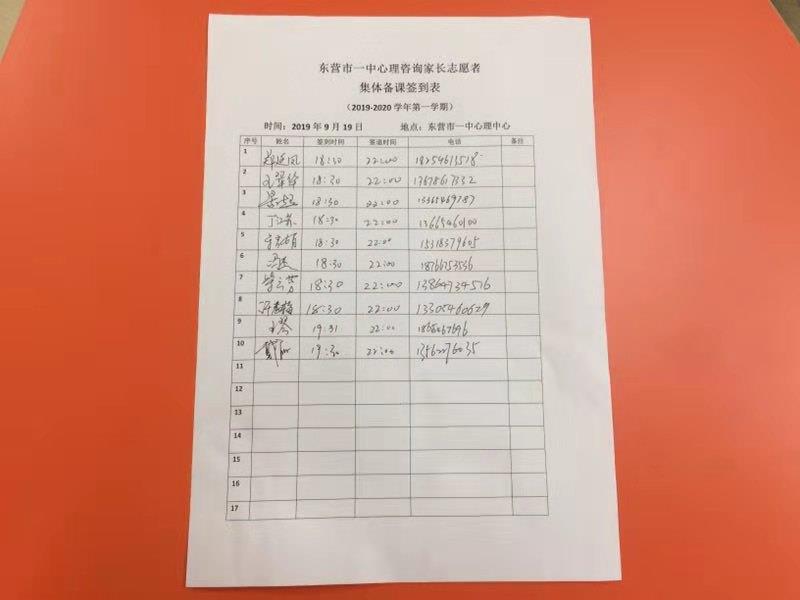 东营市一中心理咨询家长志愿者
集体备课签到表
（2019-2020 学年第一学期）
时间：2019 年 9 月 19 日 地点：东营市一中心理中心
序号 姓名 签到时间 签退时间 电话 备注
1 18:30 22:00
2 18:30 22:00 13678617332
3 18:30 22:00 13365469787
4 丁江苏 18:30 22:00 13665460100
5 18:30 22:00 15318379605
6 18:30 22:00 18766753536
7 18:30 22:00 13864734516
8 18:30 22:00 13305460629
9 王琴 19:31 22:00
10 19:30 22:00 13562276035
11
12
13
14
15
16
17